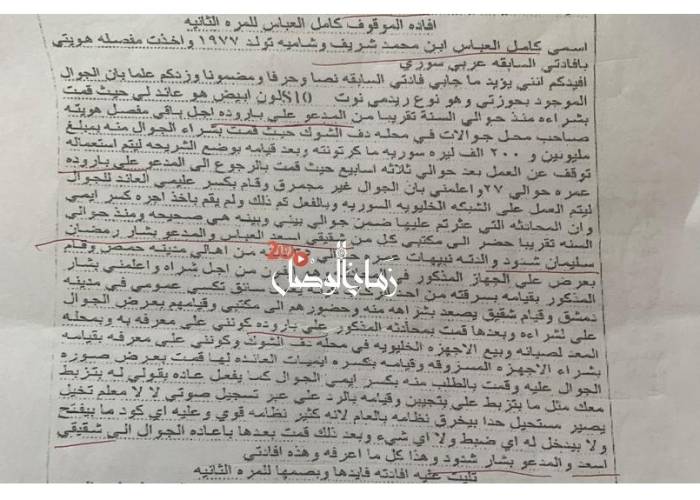 افاده الموقوف كامل العباس للمره الثانيه
اسمي كامل العباس ابن محمد شريف وشاميه تولد ١٩٧٧ واخذت مفصله هويتي
بافادتي السابقه عربي سوري
افيدكم انني يزيد ما جابي فادتي السابقه نصا وحرفا ومضمونا وزدكم علما بان الجوال
الموجود بحوزتي وهو نوع ريدمي نوت S10 لون ابيض هو عائد لي حيث قمت
بشراءه منذ حوالي السنة تقريبا من المدعو علي باروده اجهل باقي مفصل هويته
صباحب محل جوالات في محله دف الشوك حيث قمت بشراء الجوال منه بمبلغ
مليونين و ٢٠٠ الف ليره سوريه ما كرتونته وبعد قيامه بوضع الشريحه ليتم استعماله
توقف عن العمل بعد حوالي ثلاثه اسابيع حيث قمت بالرجوع الى المدعو علي باروده
عمره حوالي ٢٧ واعلمني بان الجوال غير مجمرق وقام بكسر عليمي العائد للجوال
ليتم العمل على الشبكه الخليويه السوريه وبالفعل تم ذلك ولم يقم باخذ اجره كسر ايمي
وان المحادثه التي عثرتم عليها ضمن جوالي بيني وبينه هي صحيحه ومنذ حوالي
السنه تقريبا حضر الى مكتبي كل من شقيقي اسعد العباس والمدعو بشار رمضان
سليمان شدود والدته نبيهات من اهالي مدينه حمص وقام
بعرض علي الجهاز المذكور من اجل شراه واعلمني بشار
المذكور بقيامه بسرقته من احد سائق تكسي عمومي في مدينه
دمشق وقيام شقيق يصعد بشراهه منه وحضور هم الى مكتبي وقيامهم بعرض الجوال
علي لشراءه وبعدها قمت بمحادثه المذكور علي باروده كونني على معرفه به وبمحله
المعد لصيانه وبيع الاجهزه الخليويه في محله دف الشوك وكونني على معرفه بقيامه
بشراء الاجهزه المسروقه وقيامه بكسره ايميات العائده لها قمت بعرض صوره
الجوال عليه وقمت بالطلب منه بكسر ايمي الجوال كما يفعل عاده بقولي له بتزبط
معك مثل ما بتزبط علي بتجيبن وقيامه بالرد علي عبر تسجيل صوتي لا لا معلم تخيل
يصير مستحيل حدا بيخرق نظامه بالعام لانه كثير نظامه قوي وعليه اي كود ما بيفتح
ولا بيندخل له اي ضبط ولا اي شيء وبعد ذلك قمت بعدها باعاده الجوال الى شقيقي
اسعد والمدعو بشار شدود وهذا كل ما اعرفه وهذه افادتي
تليت عليه افادته فايدها وبصمها للمره الثانيه
زمان الوصل